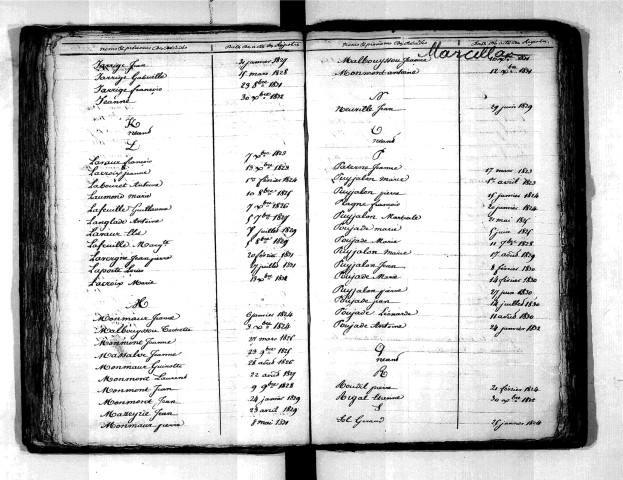 Noms et prénoms des décédés Date des actes des Registres
Farrige Jean 21 janvier 1827
Farrige Gabrielle 15 mars 1828
Farrige françois 23 8bre 1831
Jeanne 30 Xbre 1832
K
néant
L
Lavaux françois 7 Xbre 1823
Lacroix jeanne 13 Xbre 1823
Labouret Antoine 1er février 1824
Laumond marie 10 8bre 1825
Lafeuille Guillaume 7 Xbre 1826
Langlade Antoine 5 7bre 1827
Lavaux Elie 7 juillet 1829
Lafeuille 5 8bre 1829
Lavergne Jeanpierre 20 février 1831
Laporte Louis 27 juillet 1831
Lacroix Marie 13 Xbre 1832
M
Monmaux Jeane 6 janvier 1824
Malbouyssou 3 Xbre 1824
Monmont Jeanne 21 mars 1825
Massalve Jeanne 23 9bre 1825
Monmaux Guinotte 26 août 1826
Monmont Laurent 22 août 1827
Monmont Jean 9 9bre 1828
Monmont Jean 24 janvier 1829
Masseyrie Jean 23 avril 1829
Monmaux pierre 8 mai 1831
Noms et prénoms des décédés Date des actes des Registres
Marcilla
Malbouyssou Jeanne 1831
Monmont antoine 12 Xbre 1831
N
Neuville Jean 29 juin 1829
O
néant
P
Paterne Jeanne 17 mars 1823
Puyjalon marie 1er avril 1823
Puyjalon pierre 15 janvier 1824
Peigne françois 2 janvier 1824
Puyjalon Martiale 21 mai 1825
Poujade marie 5 juin 1825
Poujade Marie 11 7bre 1828
Puyjalon Marie 17 août 1829
Puyjalon Jean 8 février 1830
Poujade Marie 14 février 1830
Puyjalon pierre 27 juin 1830
Poujade jean 14 juillet 1830
Poujade Léonarde 11 août 1830
Poujade Antoine 24 janvier 1832
Q
néant
R
Roudil pierre 21 février 1824
Rigal Etienne 30 Xbre 1832
S
Sol Giraud 25 janvier 1824